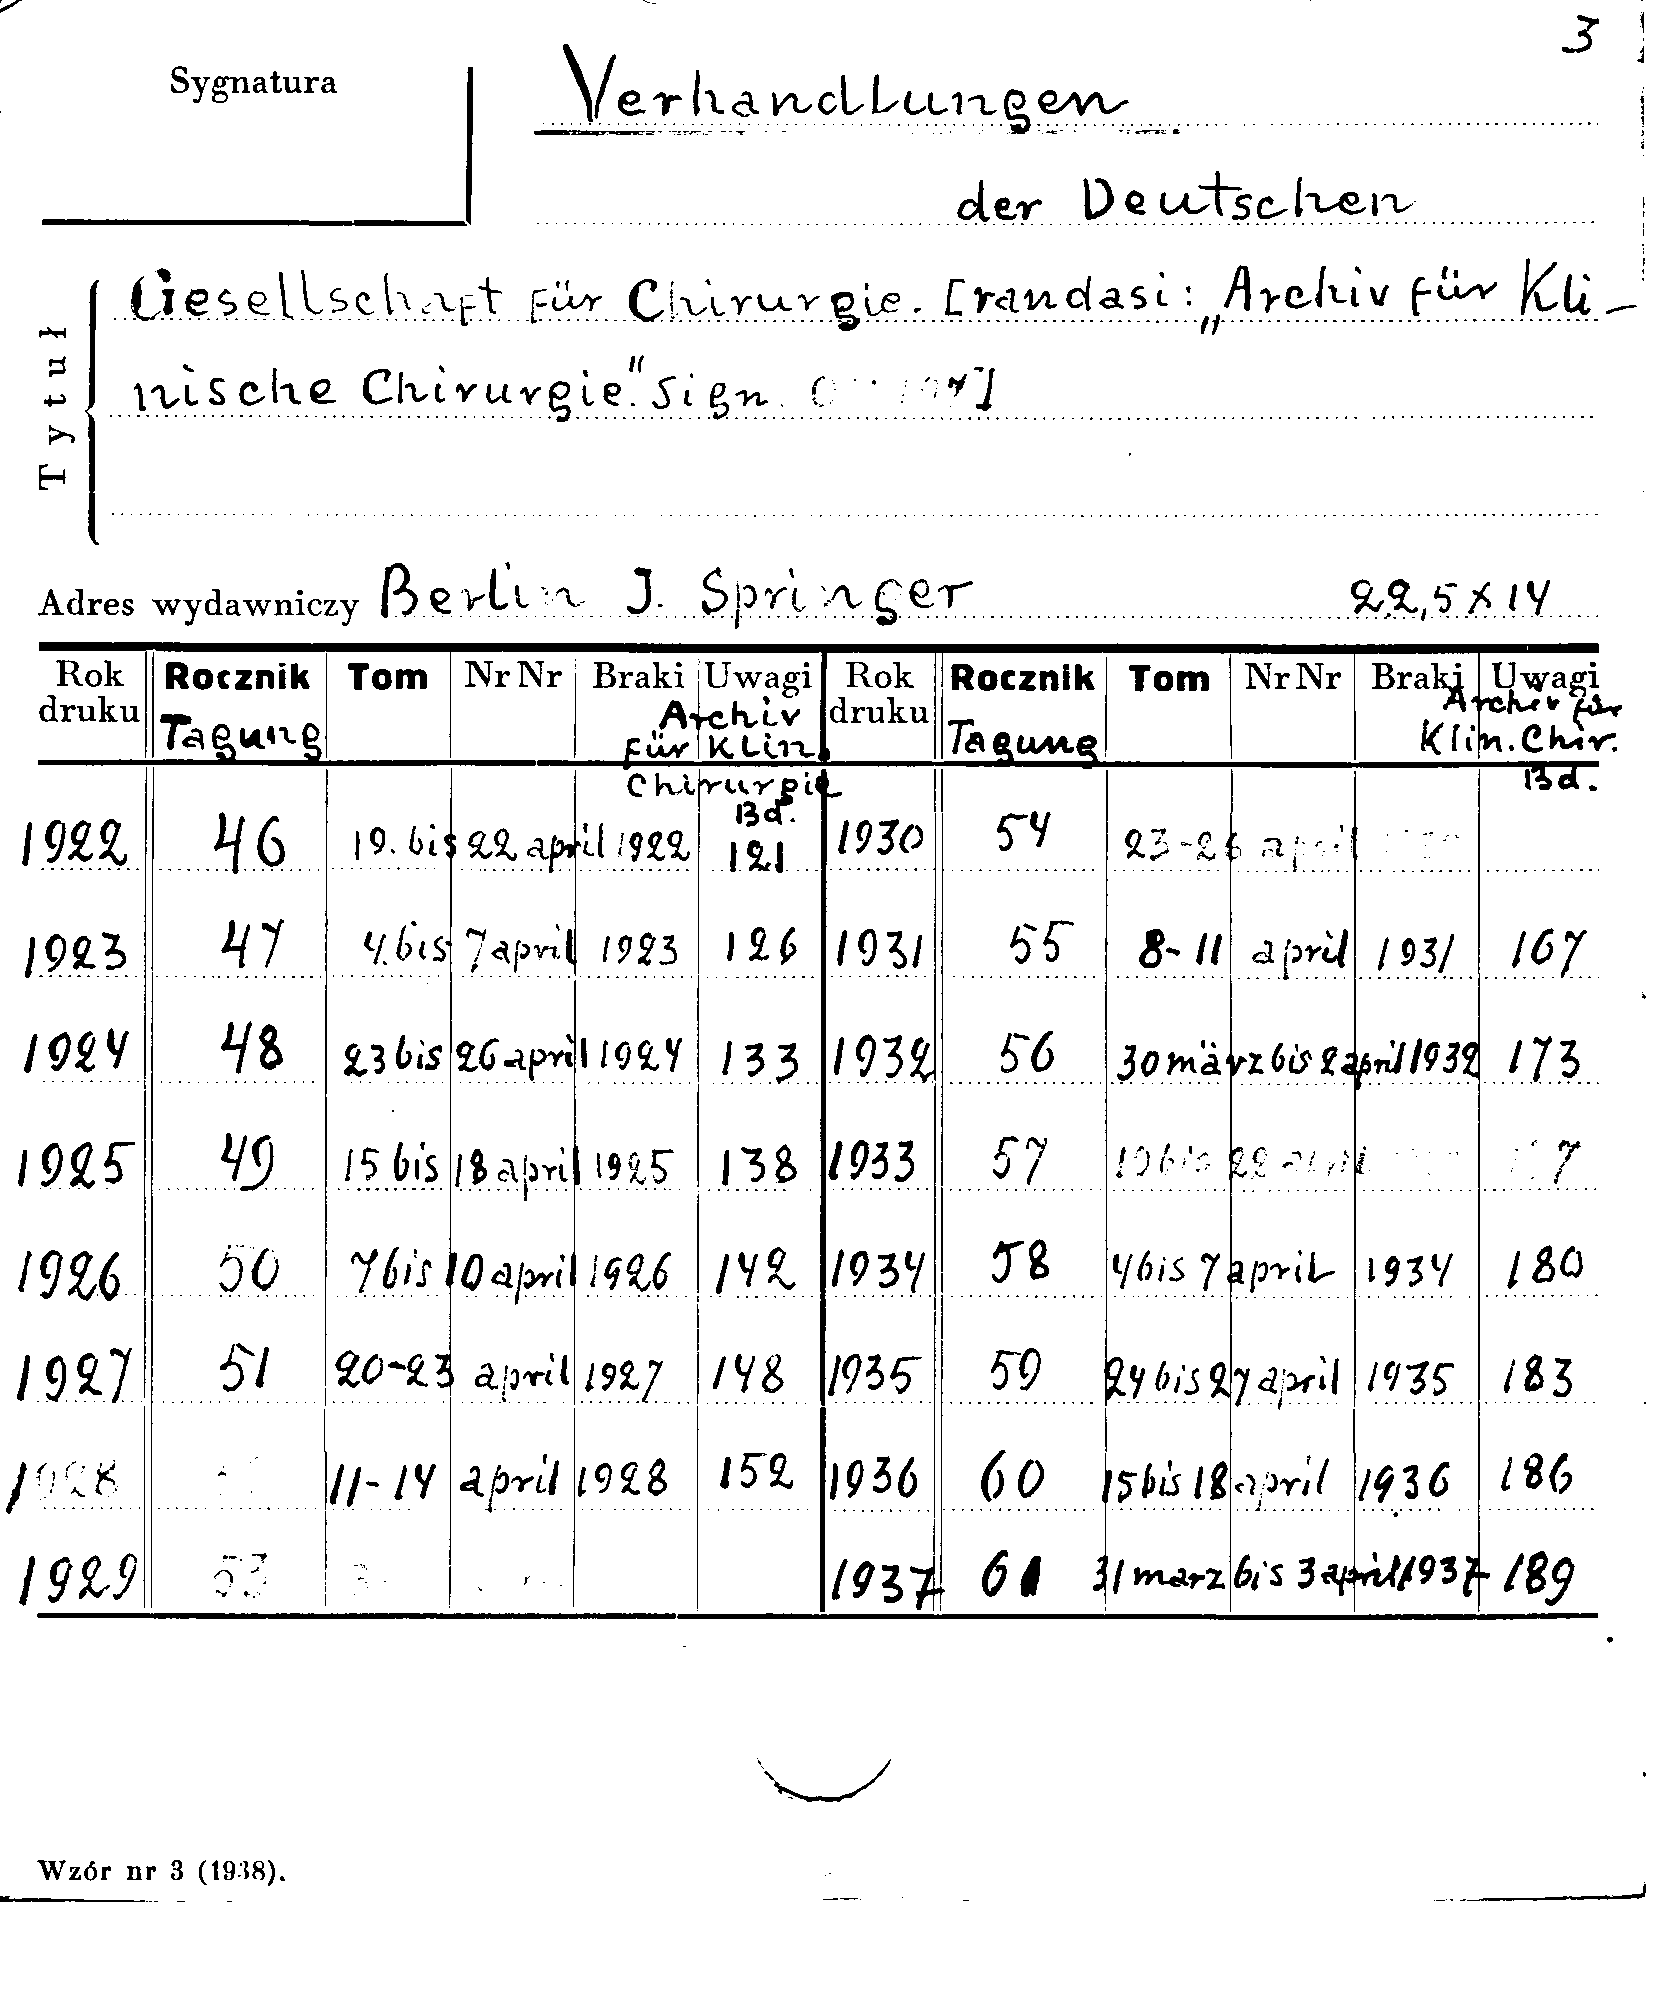 3
Sygnatura
Verhandlungen
der Deutschen
Tytuł
Gesellschaft für Chirurgie. [randasi: „Archiv für Kli-
nische Chirurgie." Sign.
Adres wydawniczy Berlin J. Springer 22,5 x 14
Rok druku Rocznik Tom Nr Nr Braki Uwagi Rok druku Rocznik Tom Nr Nr Braki Uwagi
Tagung Archiv für Klin. Chirurgie Bd. Tagung Archiv für Klin. Chir. Bd.
1922 46 19. bis 22 april 1922 121 1930 54 23-26 april
1923 47 4. bis 7 april 1923 126 1931 55 8-11 april 1931 167
1924 48 23 bis 26 april 1924 133 1932 56 30 märz bis 2 april 1932 173
1925 49 15 bis 18 april 1925 138 1933 57 19 bis 22 april
1926 50 7 bis 10 april 1926 142 1934 58 4 bis 7 april 1934 180
1927 51 20-23 april 1927 148 1935 59 24 bis 27 april 1935 183
1928 11-14 april 1928 152 1936 60 15 bis 18 april 1936 186
1929 53 1937 61 31 marz bis 3 april 1937 189
Wzór nr 3 (1938).